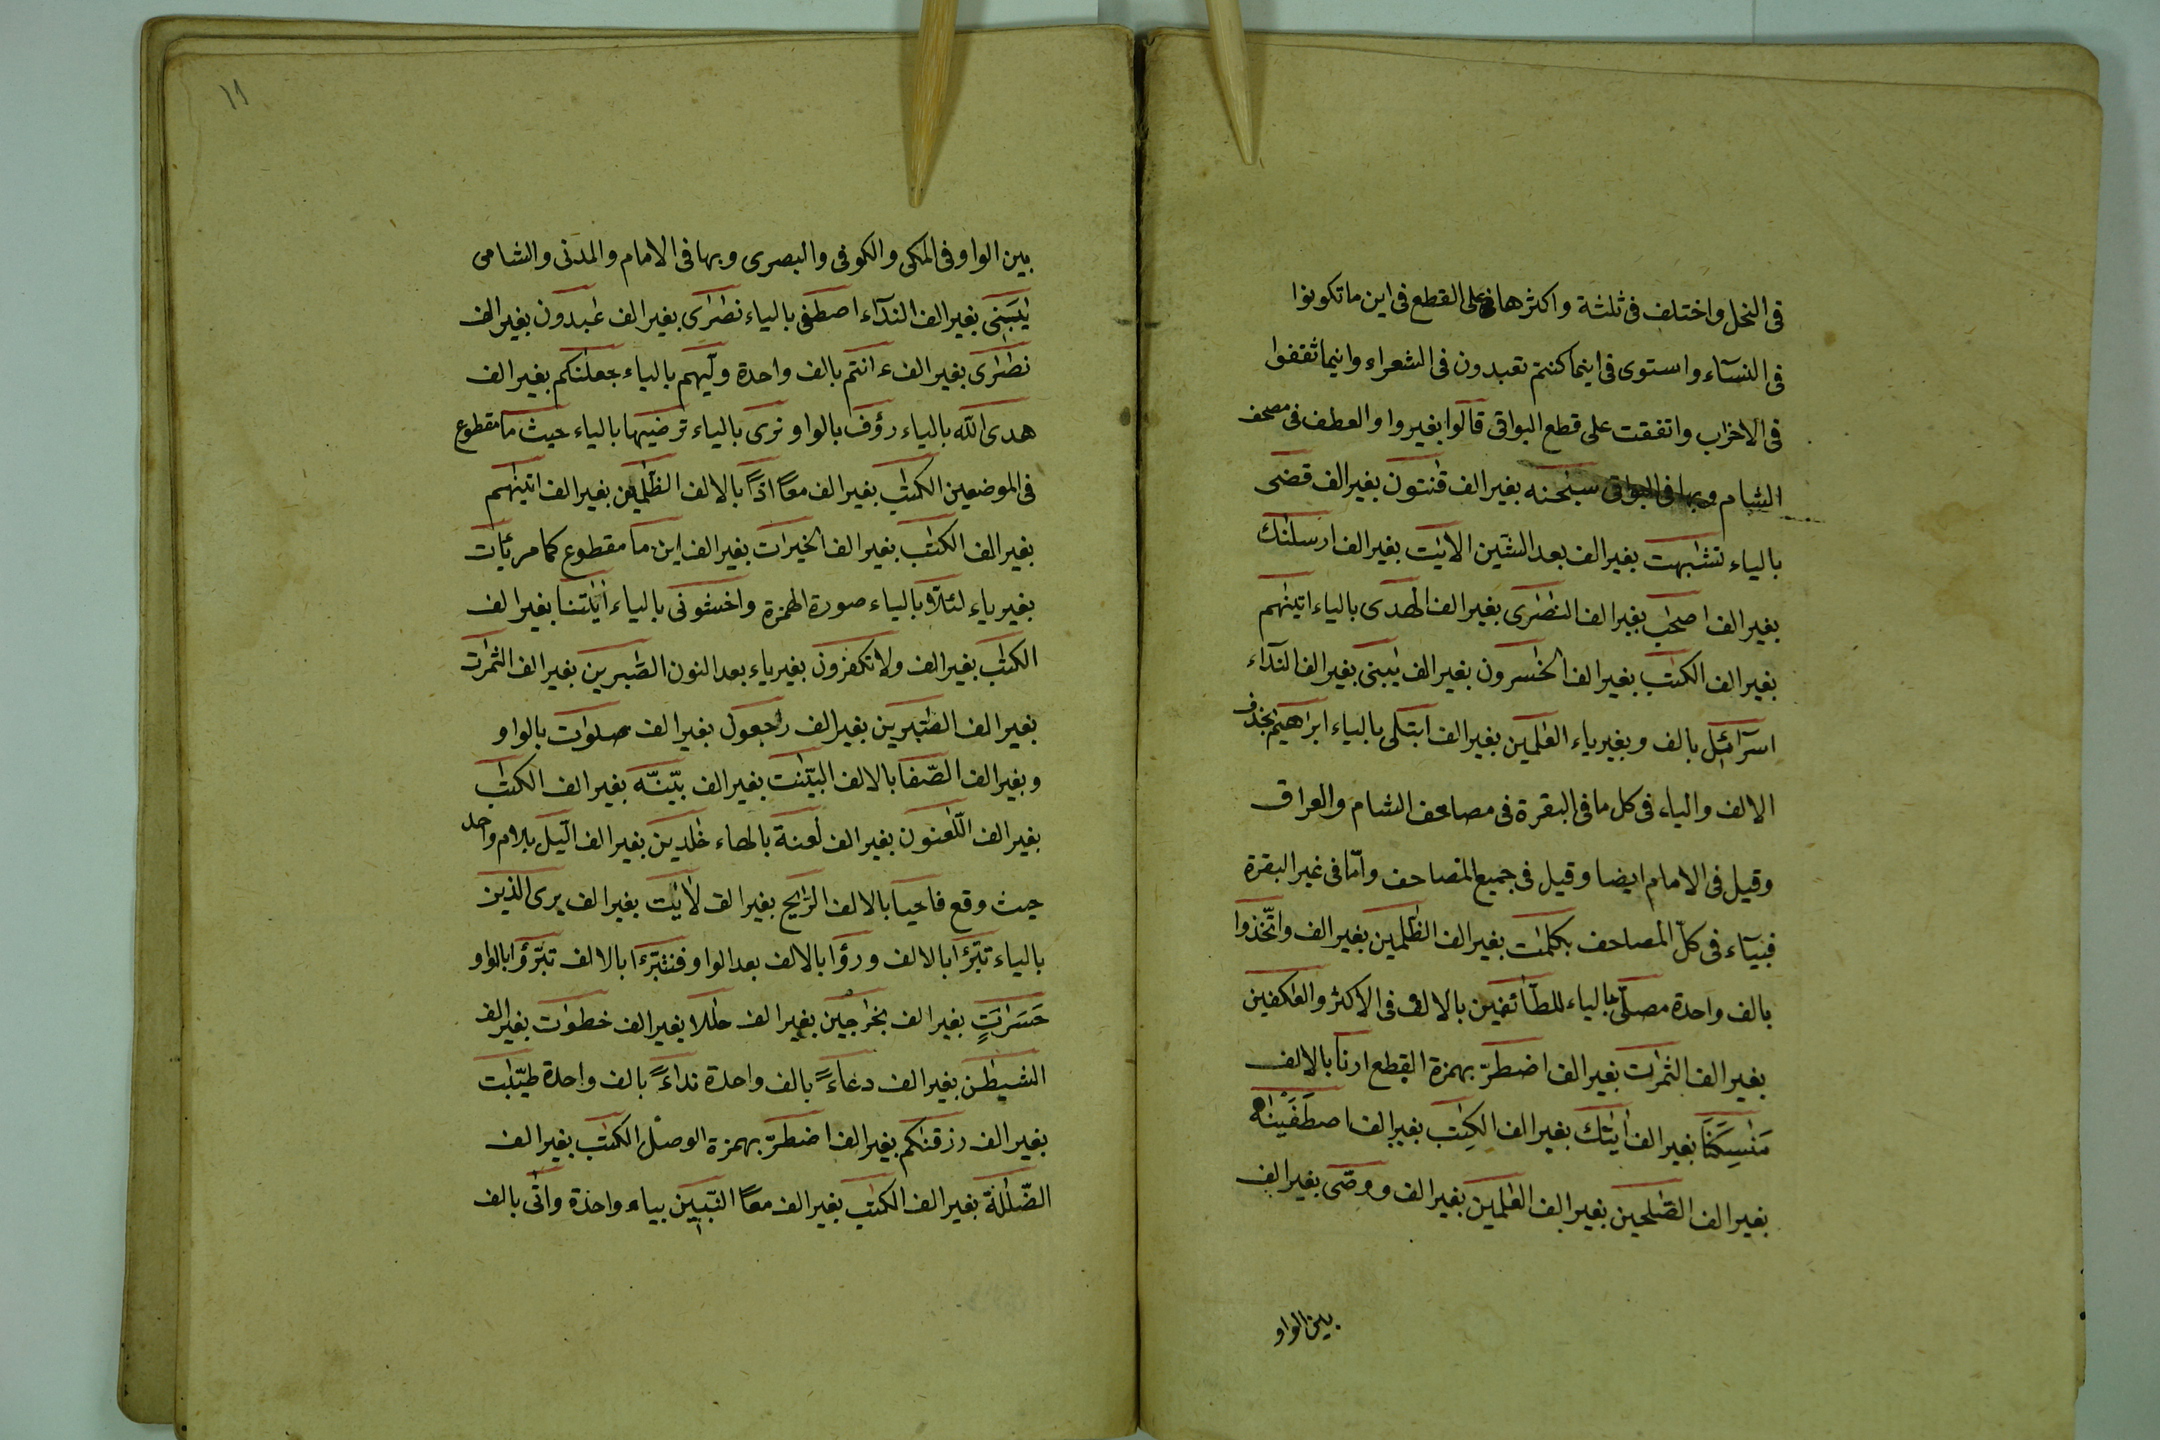 فى النحل واختلف فى ثلثة واكثرها على القطع فى اين ما تكونوا
فى النسآء واستوى فى اينما كنتم تعبدون فى الشعراء واينما ثقفوا
فى الاحزاب واتفقت على قطع البواقى قالوا بغير واو العطف فى مصحف
الشام وبها فى البواقى سبحٰنه بغير الف قٰنتون بغير الف قضى
بالياء تشٰبهت بغير الف بعد الشين الايٰت بغير الف ارسلنٰك
بغير الف اصحٰب بغير الف النصٰرى بغير الف الهدى بالياء اتينٰهم
بغير الف الكتٰب بغير الف الخٰسرون بغير الف يٰبنى بغير الف النداء
اسرآئل بالف وبغير ياء العٰلمين بغير الف ابتلى بالياء ابراهيم بحذف
الالف والياء فى كل ما فى البقرة فى مصاحف الشام والعراق
وقيل فى الامام ايضا وقيل فى جميع المصاحف وامّا فى غير البقرة
فبياء فى كلّ المصاحف بكلمٰت بغير الف الظٰلمين بغير الف واتّخذوا
بالف واحدة مصلّى بالياء للطآئفين بالالف فى الاكثر والعٰكفين
بغير الف الثمرٰت بغير الف اضطرّ بهمزة القطع ارنا بالالف
مَنٰسِكَنَا بغير الف ايٰتك بغير الف الكِتٰب بغير الف اصطَفَيْنٰه
بغير الف الصّٰلحين بغير الف العٰلمين بغير الف ووصّى بغير الف
بين الواو
١١
بين الواو فى المكى والكوفى والبصرى وبها فى الامام والمدنى والشامى
يٰبَنِى بغير الف النداء اصطفى بالياء نصٰرى بغير الف عٰبدون بغير الف
نصٰرى بغير الف ءانتم بالف واحدة ولّيهم بالياء جعلنٰكم بغير الف
هدى الله بالياء رؤف بالواو نرى بالياء ترضيها بالياء حيث ما مقطوع
فى الموضعين الكتٰب بغير الف معًا اذًا بالالف الظّٰلمين بغير الف اتينٰهم
بغير الف الكتٰب بغير الف الخيرات بغير الف اين ما مقطوع كما مر يأت
بغير ياء لئلّا بالياء صورة الهمزة واخشونى بالياء ايٰتنا بغير الف
الكتٰب بغير الف ولا تكفرون بغير ياء بعد النون الصّٰبرين بغير الف الثمرٰت
بغير الف الصّٰبرين بغير الف رٰجعون بغير الف صلوٰت بالواو
وبغير الف الصّفا بالالف البيّنٰت بغير الف بيّنّٰه بغير الف الكتٰب
بغير الف اللّٰعنون بغير الف لعنة بالهاء خٰلدين بغير الف الّيل بلام واحد
حيث وقع فاحيا بالالف الرّيٰح بغير الف لايٰت بغير الف يرى الذين
بالياء تبرّءا بالالف ورؤا بالالف بعد الواو فنتبرّءا بالالف تبرّؤا بالواو
حَسَرٰتٍ بغير الف بخٰرجين بغير الف حلٰلا بغير الف خطوٰت بغير الف
الشيطٰن بغير الف دعاءً بالف واحدة نداءً بالف واحدة طيّبٰت
بغير الف رزقنٰكم بغير الف اضطرّ بهمزة الوصل الكتٰب بغير الف
الضّلٰلة بغير الف الكتٰب بغير الف معًا النّبيين بياء واحدة واتى بالف